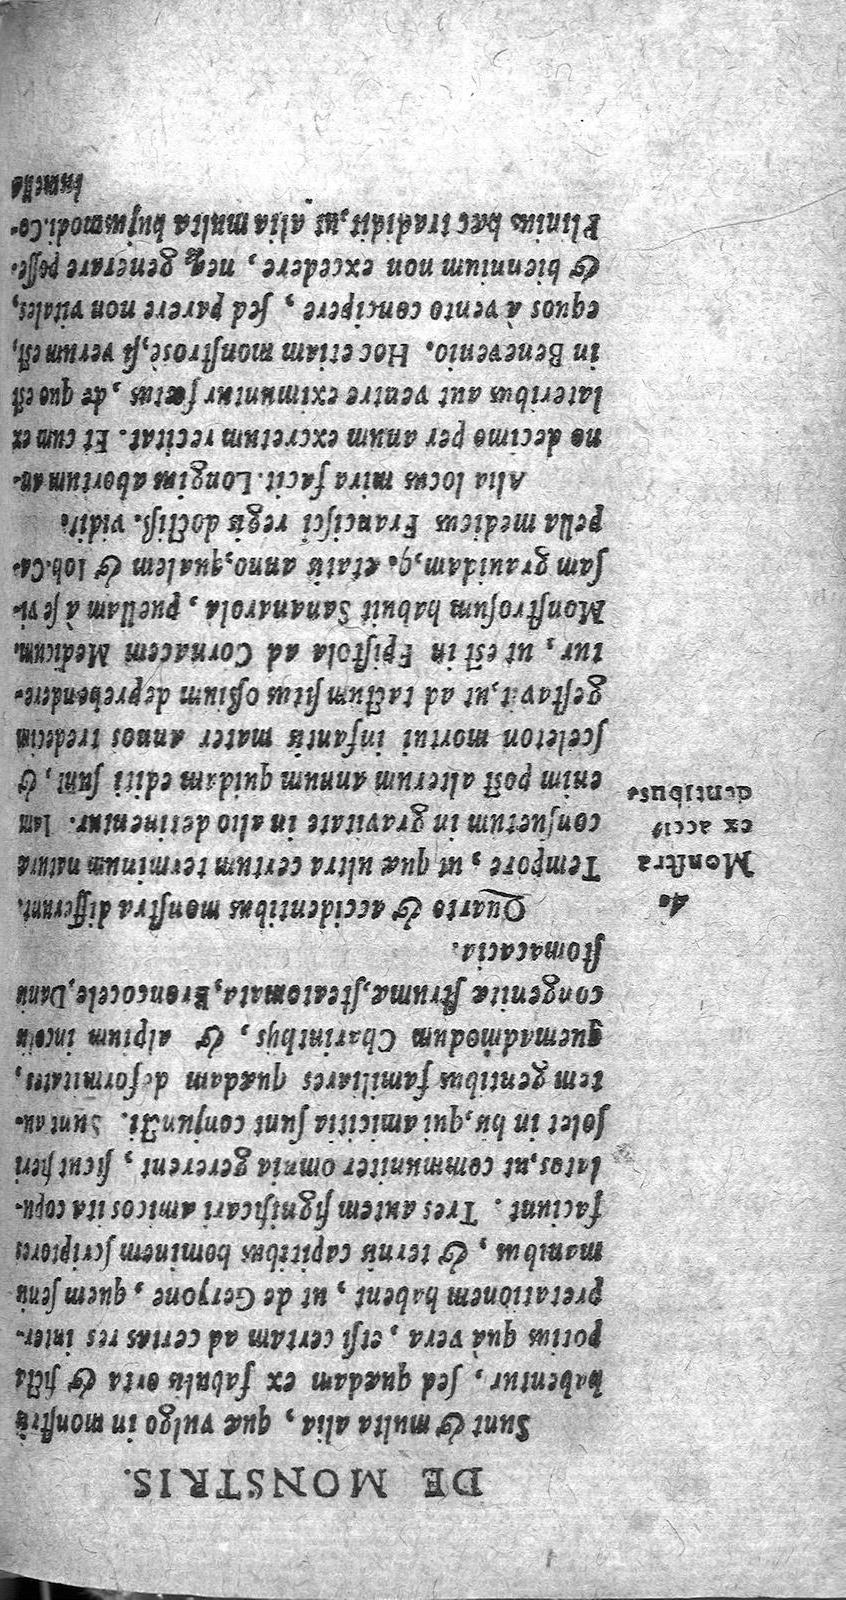 DE MONSTRIS.
Sunt & multa alia, quæ vulgo in monstris
habentur, sed quædam ex fabulis orta & ficta
potius quā vera, etsi certam ad certas res inter-
pretationem habent, ut de Geryone, quem senis
manibus, & ternis capitibus hominem scriptores
faciunt. Tres autem significari amicos ita copu-
latos, ut communiter omnia gererent, sicut fieri
solet in his, qui amicitia sunt conjuncti. Sunt au-
tem gentibus familiares quædam deformitates,
quemadmodum Charinthijs, & alpium incolis
congenitæ strumæ, steatomata, Broncocele, Danis
stomacacia.
Quarto & accidentibus monstra differunt.
4o
Monstra
ex acci
dentibus.
Tempore, ut quæ ultra certum terminum naturæ
consuetum in gravitate in alio detinentur. Iam
enim post alterum annum quidam editi sunt, &
sceleton mortui infantis mater annos tredecim
gestavit, ut ad tactum situs oßium deprehendere-
tur, ut est in Epistola ad Cornacem Medicum.
Monstrosum habuit Sananarola, puellam à se vi-
sam gravidam, 9. ætatis anno, qualem & Ioh. Ca-
pella medicus Francisci regis doctiss. vidit.
Alia locus mira facit. Longius abortum an-
no decimo per anum excretum recitat. Et cum ex
lateribus aut ventre eximuntur fœtus, de quo est
in Benevenio. Hoc etiam monstrosè, si verum est,
equos à vento concipere, sed parere non vitales,
& biennium non excedere, neq; generare posse.
Plinius hæc tradidit, ut alia multa hujusmodi. Co-
lumella